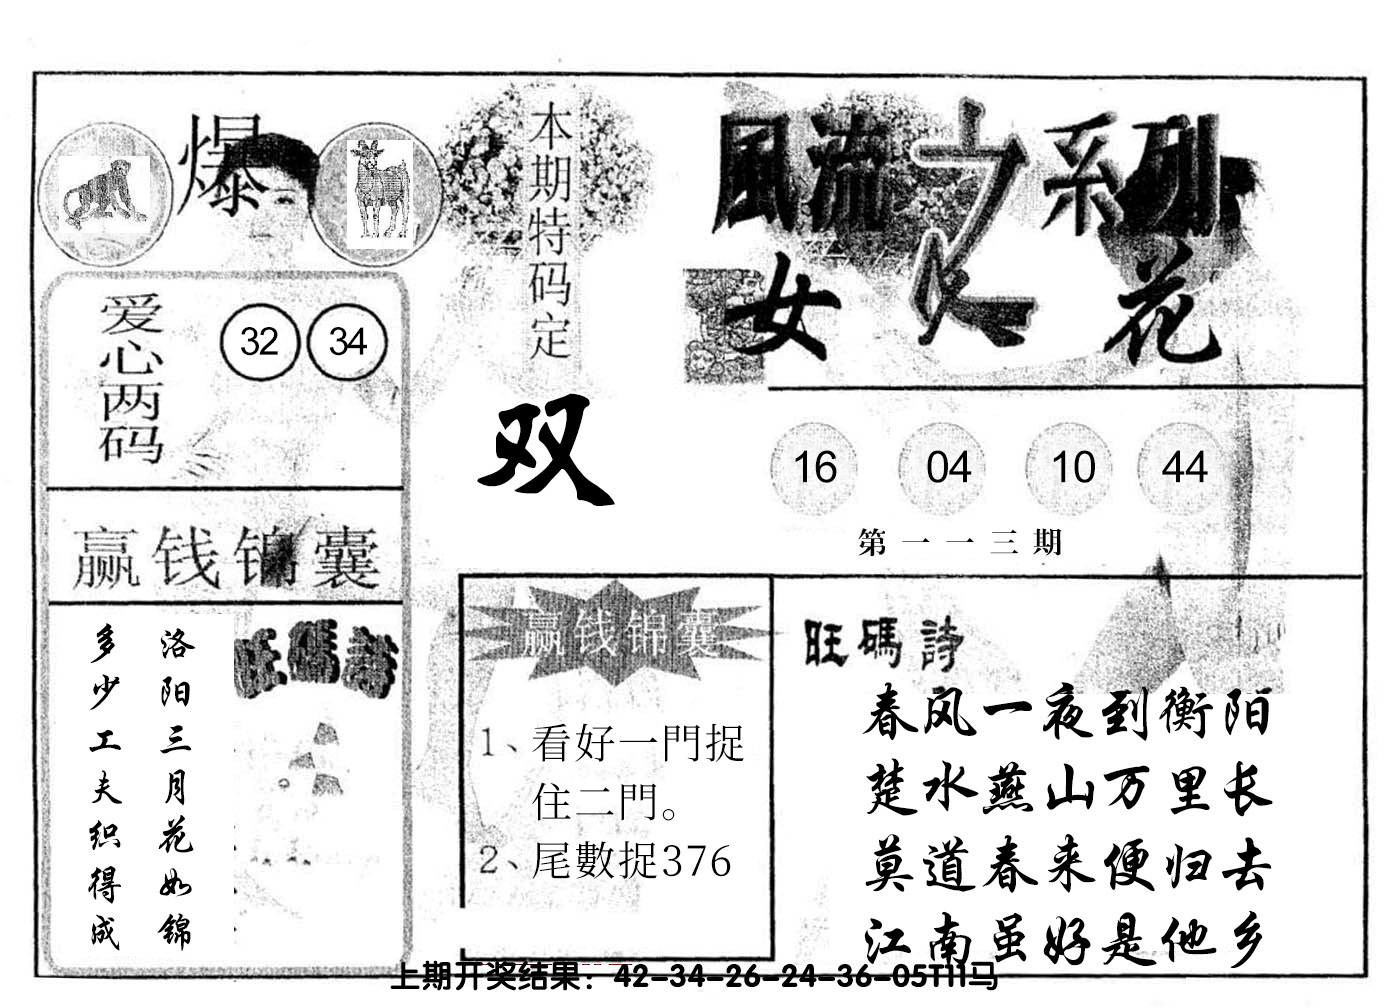 爆
本期特码定
双
風流之系列
女人花
爱心两码
32 34
16 04 10 44
第一一三期
赢钱锦囊
洛阳三月花如锦
多少工夫织得成
旺碼詩
赢钱锦囊
1、看好一門捉
住二門。
2、尾數捉376
旺碼詩
春风一夜到衡阳
楚水燕山万里长
莫道春来便归去
江南虽好是他乡
上期开奖结果：42-34-26-24-36-05T11马